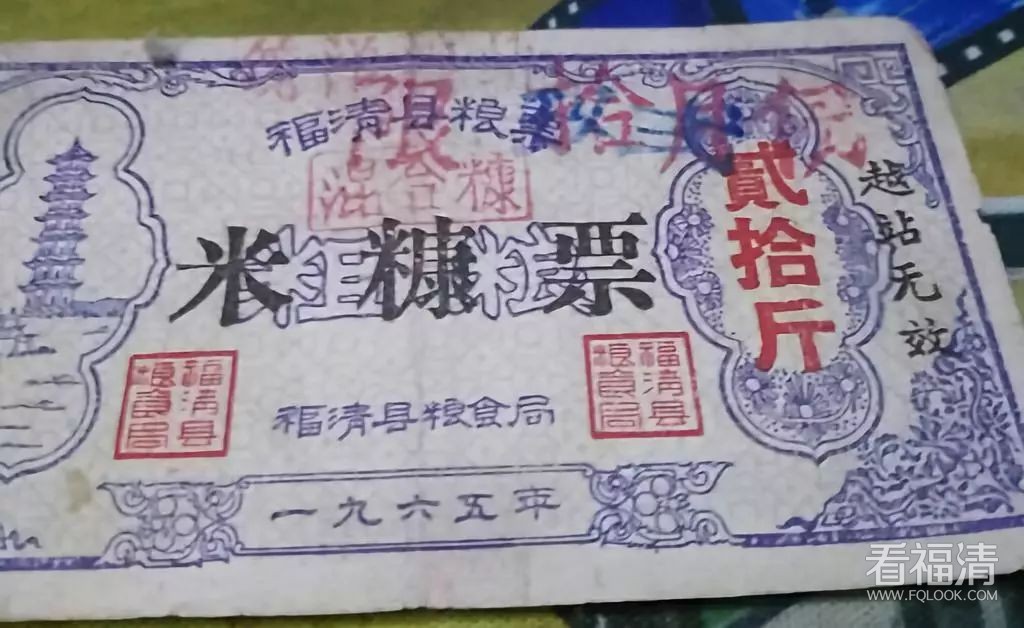 福清县粮票
混合糠
米糠票
贰拾斤
越站无效
福清县
粮食局
福清县粮食局
福清县
粮食局
一九六五年
看福清
WWW.FQLOOK.COM